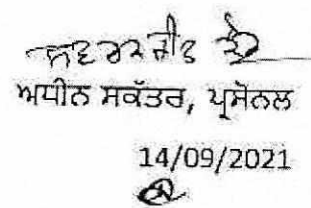 ਅਧੀਨ ਸਕੱਤਰ, ਪ੍ਰਸੋਨਲ
14/09/2021